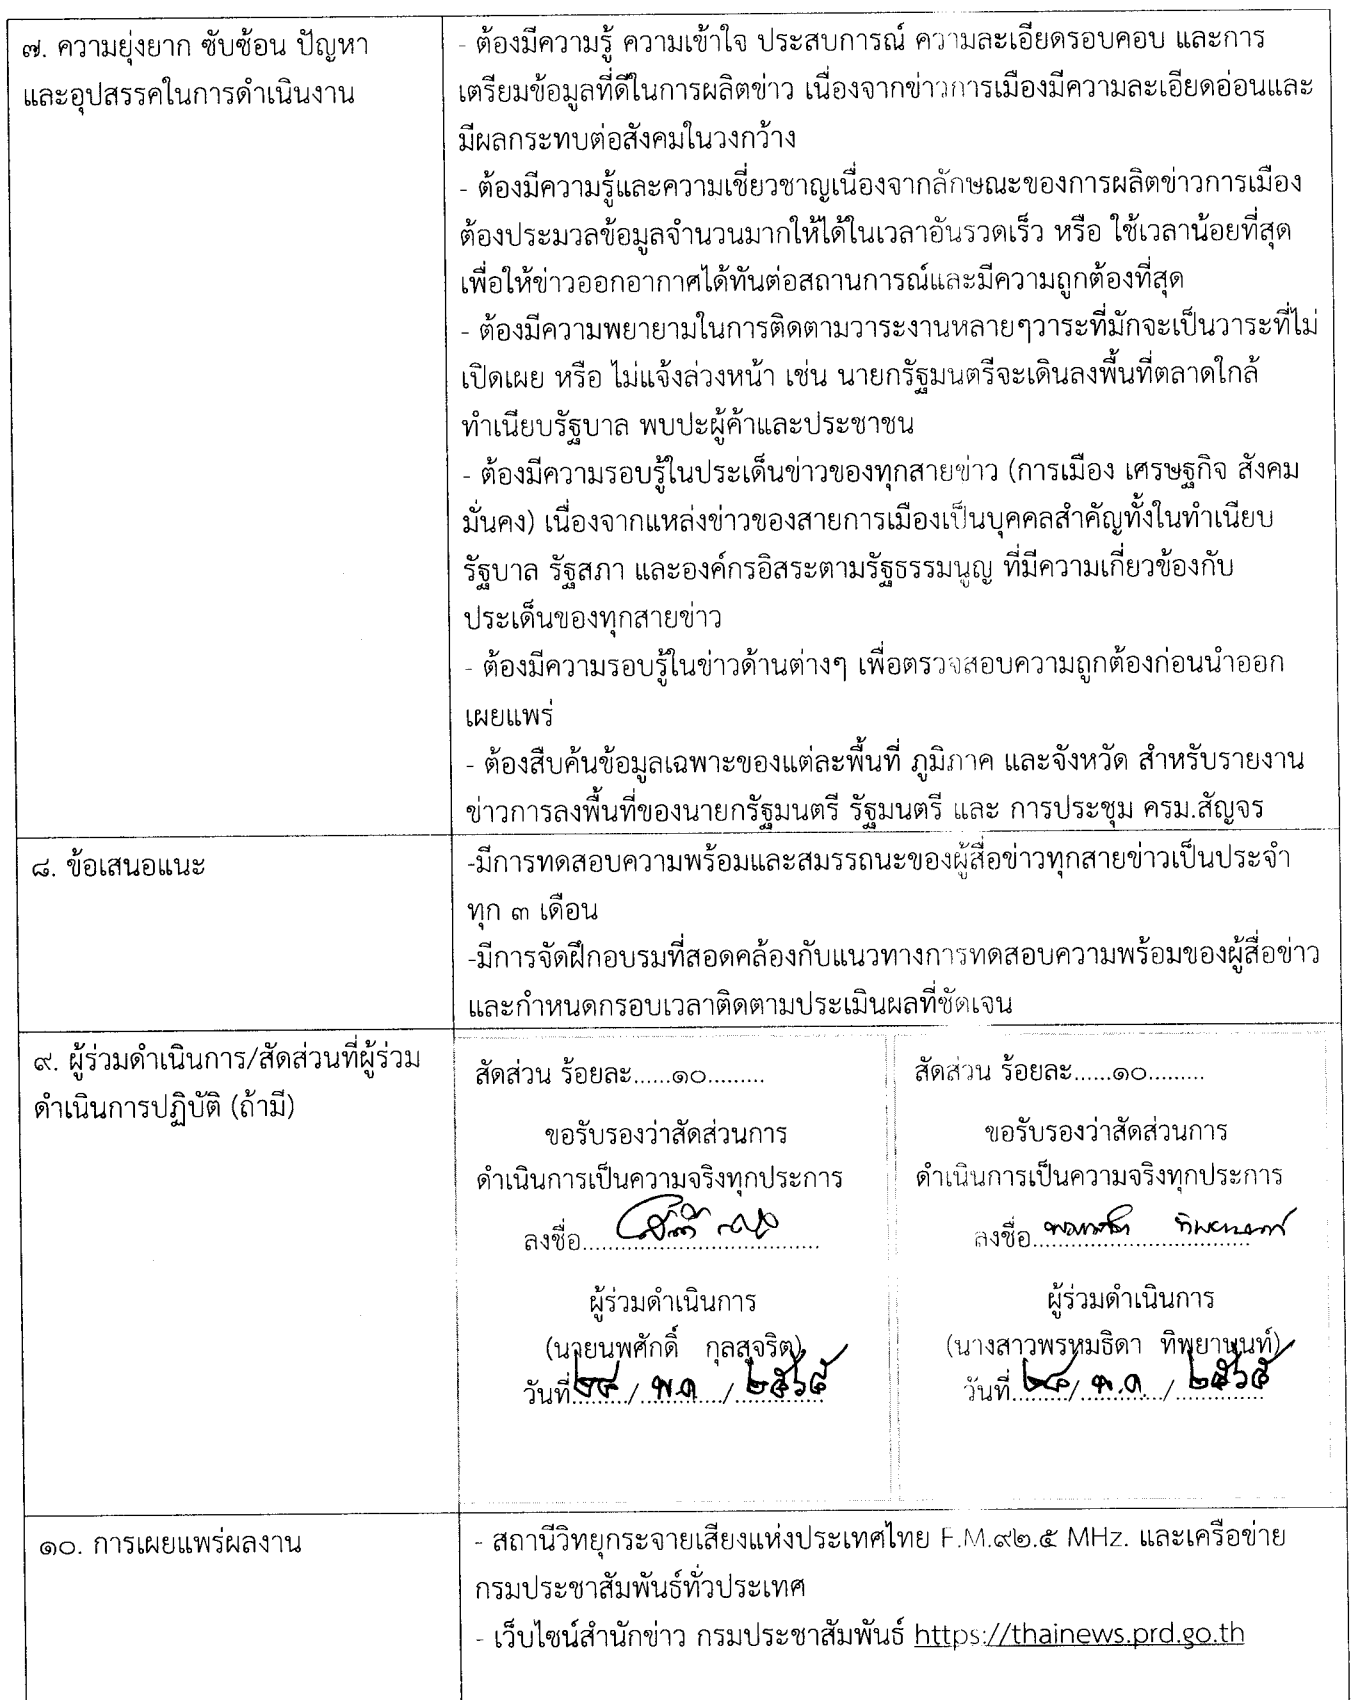 ๗. ความยุ่งยาก ซับซ้อน ปัญหา
และอุปสรรคในการดำเนินงาน
- ต้องมีความรู้ ความเข้าใจ ประสบการณ์ ความละเอียดรอบคอบ และการ
เตรียมข้อมูลที่ดีในการผลิตข่าว เนื่องจากข่าวการเมืองมีความละเอียดอ่อนและ
มีผลกระทบต่อสังคมในวงกว้าง
- ต้องมีความรู้และความเชี่ยวชาญเนื่องจากลักษณะของการผลิตข่าวการเมือง
ต้องประมวลข้อมูลจำนวนมากให้ได้ในเวลาอันรวดเร็ว หรือ ใช้เวลาน้อยที่สุด
เพื่อให้ข่าวออกอากาศได้ทันต่อสถานการณ์และมีความถูกต้องที่สุด
- ต้องมีความพยายามในการติดตามวาระงานหลายๆวาระที่มักจะเป็นวาระที่ไม่
เปิดเผย หรือ ไม่แจ้งล่วงหน้า เช่น นายกรัฐมนตรีจะเดินลงพื้นที่ตลาดใกล้
ทำเนียบรัฐบาล พบปะผู้ค้าและประชาชน
- ต้องมีความรอบรู้ในประเด็นข่าวของทุกสายข่าว (การเมือง เศรษฐกิจ สังคม
มั่นคง) เนื่องจากแหล่งข่าวของสายการเมืองเป็นบุคคลสำคัญทั้งในทำเนียบ
รัฐบาล รัฐสภา และองค์กรอิสระตามรัฐธรรมนูญ ที่มีความเกี่ยวข้องกับ
ประเด็นของทุกสายข่าว
- ต้องมีความรอบรู้ในข่าวด้านต่างๆ เพื่อตรวจสอบความถูกต้องก่อนนำออก
เผยแพร่
- ต้องสืบค้นข้อมูลเฉพาะของแต่ละพื้นที่ ภูมิภาค และจังหวัด สำหรับรายงาน
ข่าวการลงพื้นที่ของนายกรัฐมนตรี รัฐมนตรี และ การประชุม ครม.สัญจร
๘. ข้อเสนอแนะ
-มีการทดสอบความพร้อมและสมรรถนะของผู้สื่อข่าวทุกสายข่าวเป็นประจำ
ทุก ๓ เดือน
-มีการจัดฝึกอบรมที่สอดคล้องกับแนวทางการทดสอบความพร้อมของผู้สื่อข่าว
และกำหนดกรอบเวลาติดตามประเมินผลที่ชัดเจน
๙. ผู้ร่วมดำเนินการ/สัดส่วนที่ผู้ร่วม
ดำเนินการปฏิบัติ (ถ้ามี)
สัดส่วน ร้อยละ......๑๐.........
ขอรับรองว่าสัดส่วนการ
ดำเนินการเป็นความจริงทุกประการ
ลงชื่อ
ผู้ร่วมดำเนินการ
(นายนพศักดิ์ กุลสุจริต)
วันที่ ๒๔ / พ.ค. / ๒๕๖๕
สัดส่วน ร้อยละ......๑๐.........
ขอรับรองว่าสัดส่วนการ
ดำเนินการเป็นความจริงทุกประการ
ลงชื่อ
ผู้ร่วมดำเนินการ
(นางสาวพรหมธิดา ทิพยานนท์)
วันที่ ๒๔ / พ.ค. / ๒๕๖๕
๑๐. การเผยแพร่ผลงาน
- สถานีวิทยุกระจายเสียงแห่งประเทศไทย F.M.๙๒.๕ MHz. และเครือข่าย
กรมประชาสัมพันธ์ทั่วประเทศ
- เว็บไซน์สำนักข่าว กรมประชาสัมพันธ์ https://thainews.prd.go.th